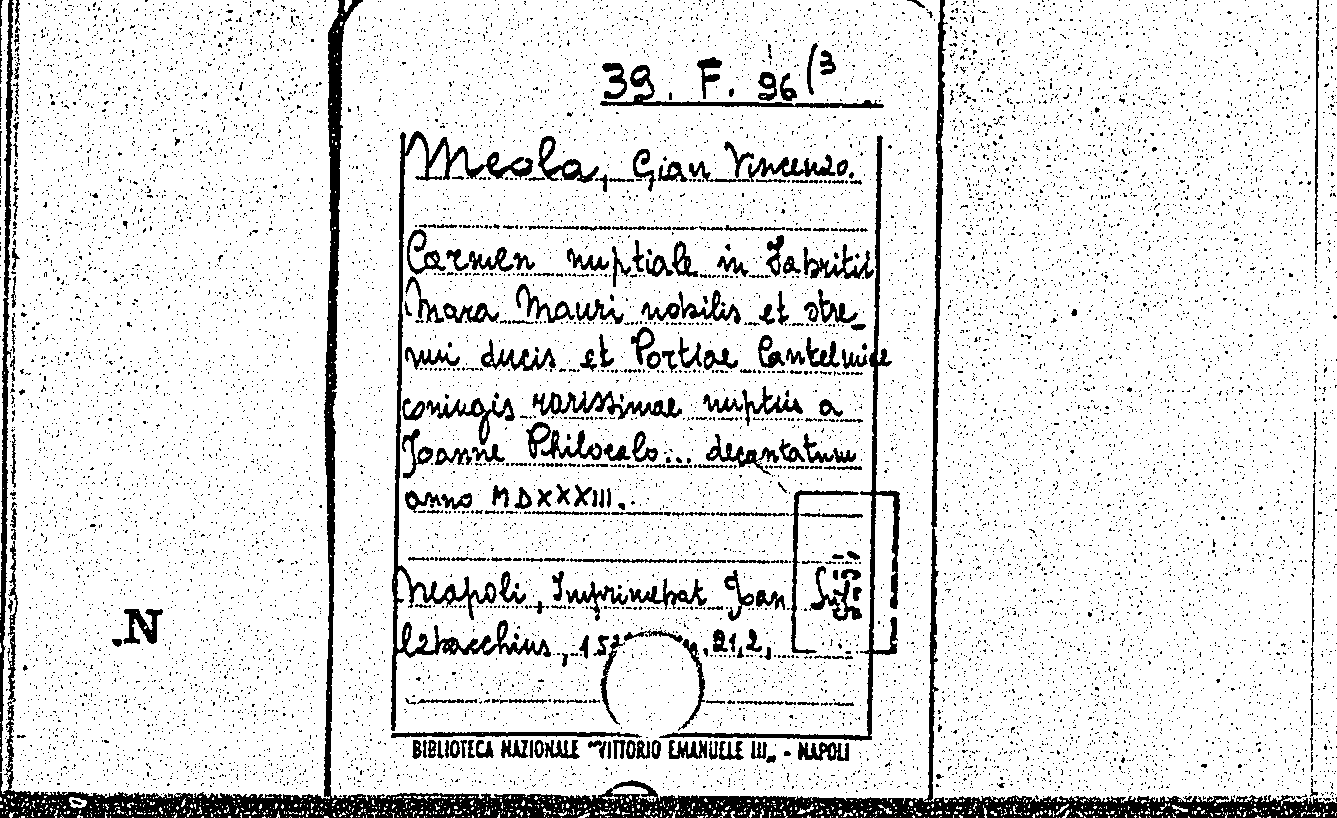 39. F. 96(3
Meola, Gian Vincenzo.
Carmen nuptiale in Fabritii
Mara Mauri nobilis et stre_
nui ducis et Portiae Cantelmiae
coniugis rarissimae nuptiis a
Joanne Philocalo... decantatum
anno MDXXXIII.
Neapoli, Imprimebat Joan
bacchius, 21,2,
.N
BIBLIOTECA NAZIONALE "VITTORIO EMANUELE III„ - NAPOLI